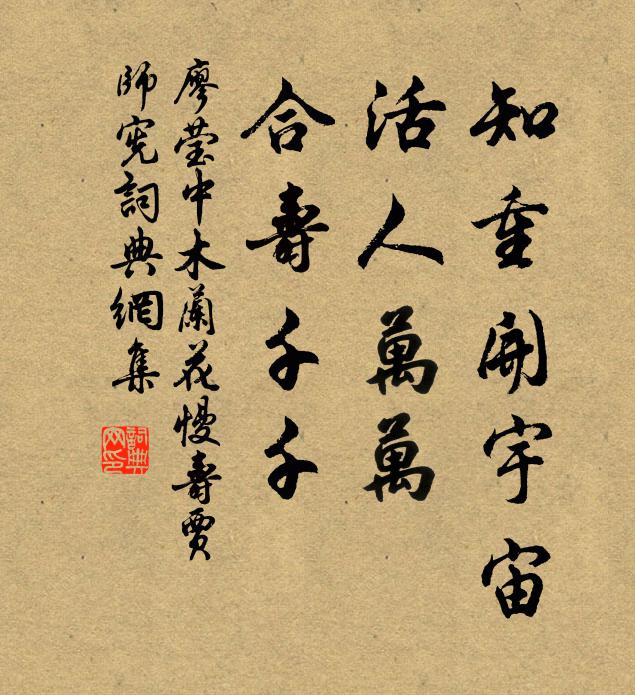 知重開宇宙
活人萬萬
合壽千千
廖瑩中木蘭花慢壽賈
師宪詞典網集
詞典網印